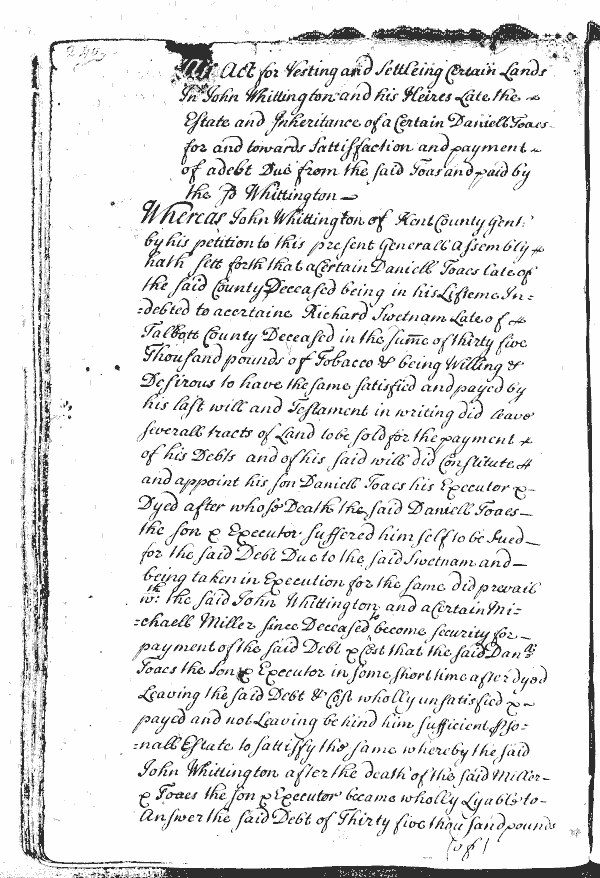 An Act for Vesting and Settleing Certain Lands
In John Whittington and his Heires Late the
Estate and Inheritance of a Certain Daniell Toaes
for and towards Sattisfaction and payment
of a debt Due from the said Toas and paid by
the Sd Whittington
Whereas John Whittington of Kent County Gent:
by his petition to this present Generall Assembly
hath sett forth that a Certain Daniell Toaes late of
the said County Deceased being in his Lifteme In=
=debted to a certaine Richard Swetnam Late of
Talbott County Deceased in the sume of thirty five
Thousand pounds of Tobacco & being Willing &
Desirous to have the same satisfied and payed by
his last will and Testament in writing did leave
severall tracts of Land to be sold for the payment
of his Debts and of his said will did Constitute
and appoint his son Daniell Toaes his Executor &
Dyed after whose Death the said Daniell Toaes
the son & Executor suffered himself to be Sued
for the said Debt Due to the said Swetnam and
being taken in Execution for the same did prevail
wth: the said John Whittington and a Certain Mi=
=chaell Miller since Deceased to become security for
payment of the said Debt & Cost that the said Danll
Toaes the Son & Executor in some short time after dyed
Leaving the said Debt & Cost wholly unsatisfied &
payed and not Leaving behind him sufficient Pso=
=nall Estate to sattisfy the same whereby the said
John Whittington after the death of the said Miller
& Toaes the son & Executor became wholly Lyable to
Answer the said Debt of Thirty five thousand pounds
of